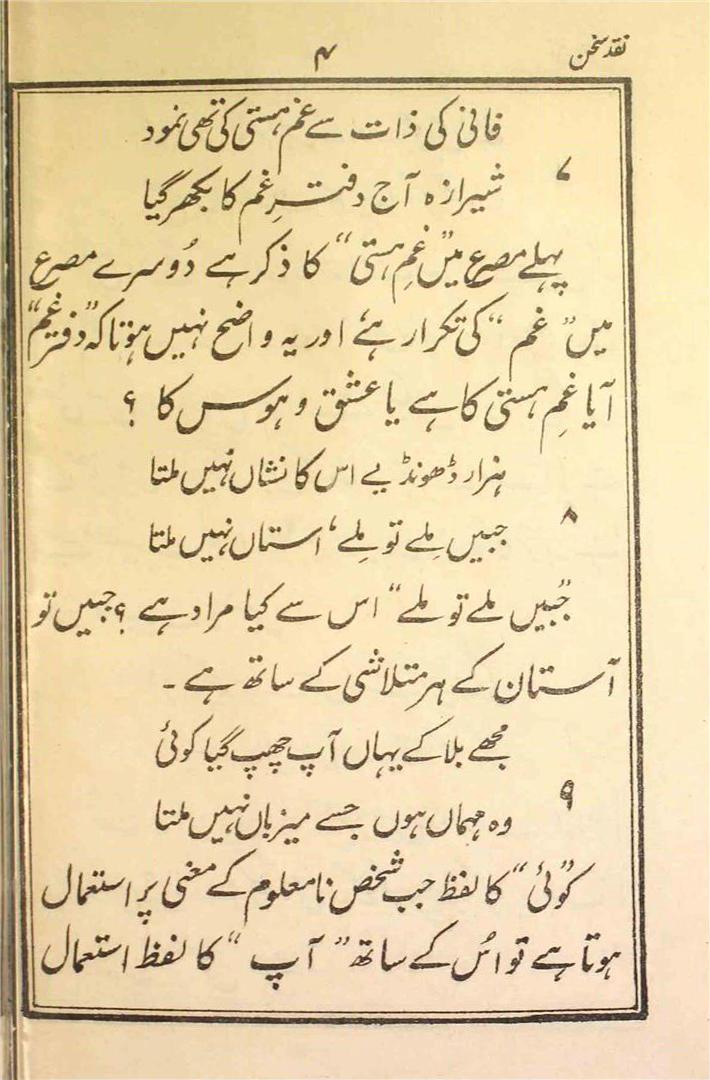 نقد سخن
۴
فانی کی ذات سے غم ہستی کی تھی نمود
۷
شیرازہ آج دفترِ غم کا بکھر گیا
پہلے مصرع میں "غمِ ہستی" کا ذکر ہے دُوسرے مصرع
میں "غم" کی تکرار ہے اور یہ واضح نہیں ہوتا کہ "دفترِ غم"
آیا غمِ ہستی کا ہے یا عشق و ہوس کا ؟
ہزار ڈھونڈیے اس کا نشاں نہیں ملتا
۸
جبیں ملے تو ملے، استاں نہیں ملتا
"جبیں ملے تو ملے" اس سے کیا مراد ہے ؟ جبیں تو
آستان کے ہر متلاشی کے ساتھ ہے ۔
مجھے بلا کے یہاں آپ چھپ گیا کوئی
۹
وہ مہماں ہوں جسے میزباں نہیں ملتا
"کوئی" کا لفظ جب شخص نامعلوم کے معنی پر استعمال
ہوتا ہے تو اُس کے ساتھ "آپ" کا لفظ استعمال